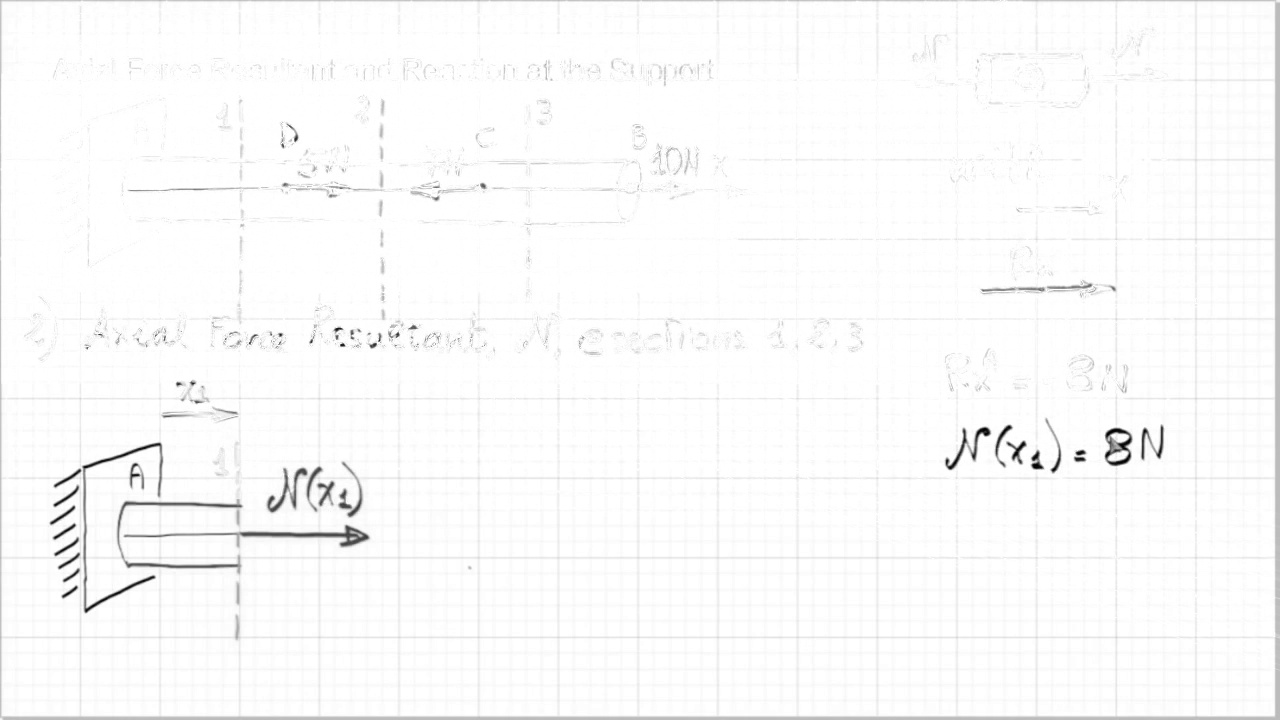 Axial Force Resultant and Reaction at the Support
N N
1 2 3
A D C B
5N 7N 10N x
x
2) Axial Force Resultant, N, @ sections 1, 2, 3
x1
1
A N(x1)
N(x1) = 8N